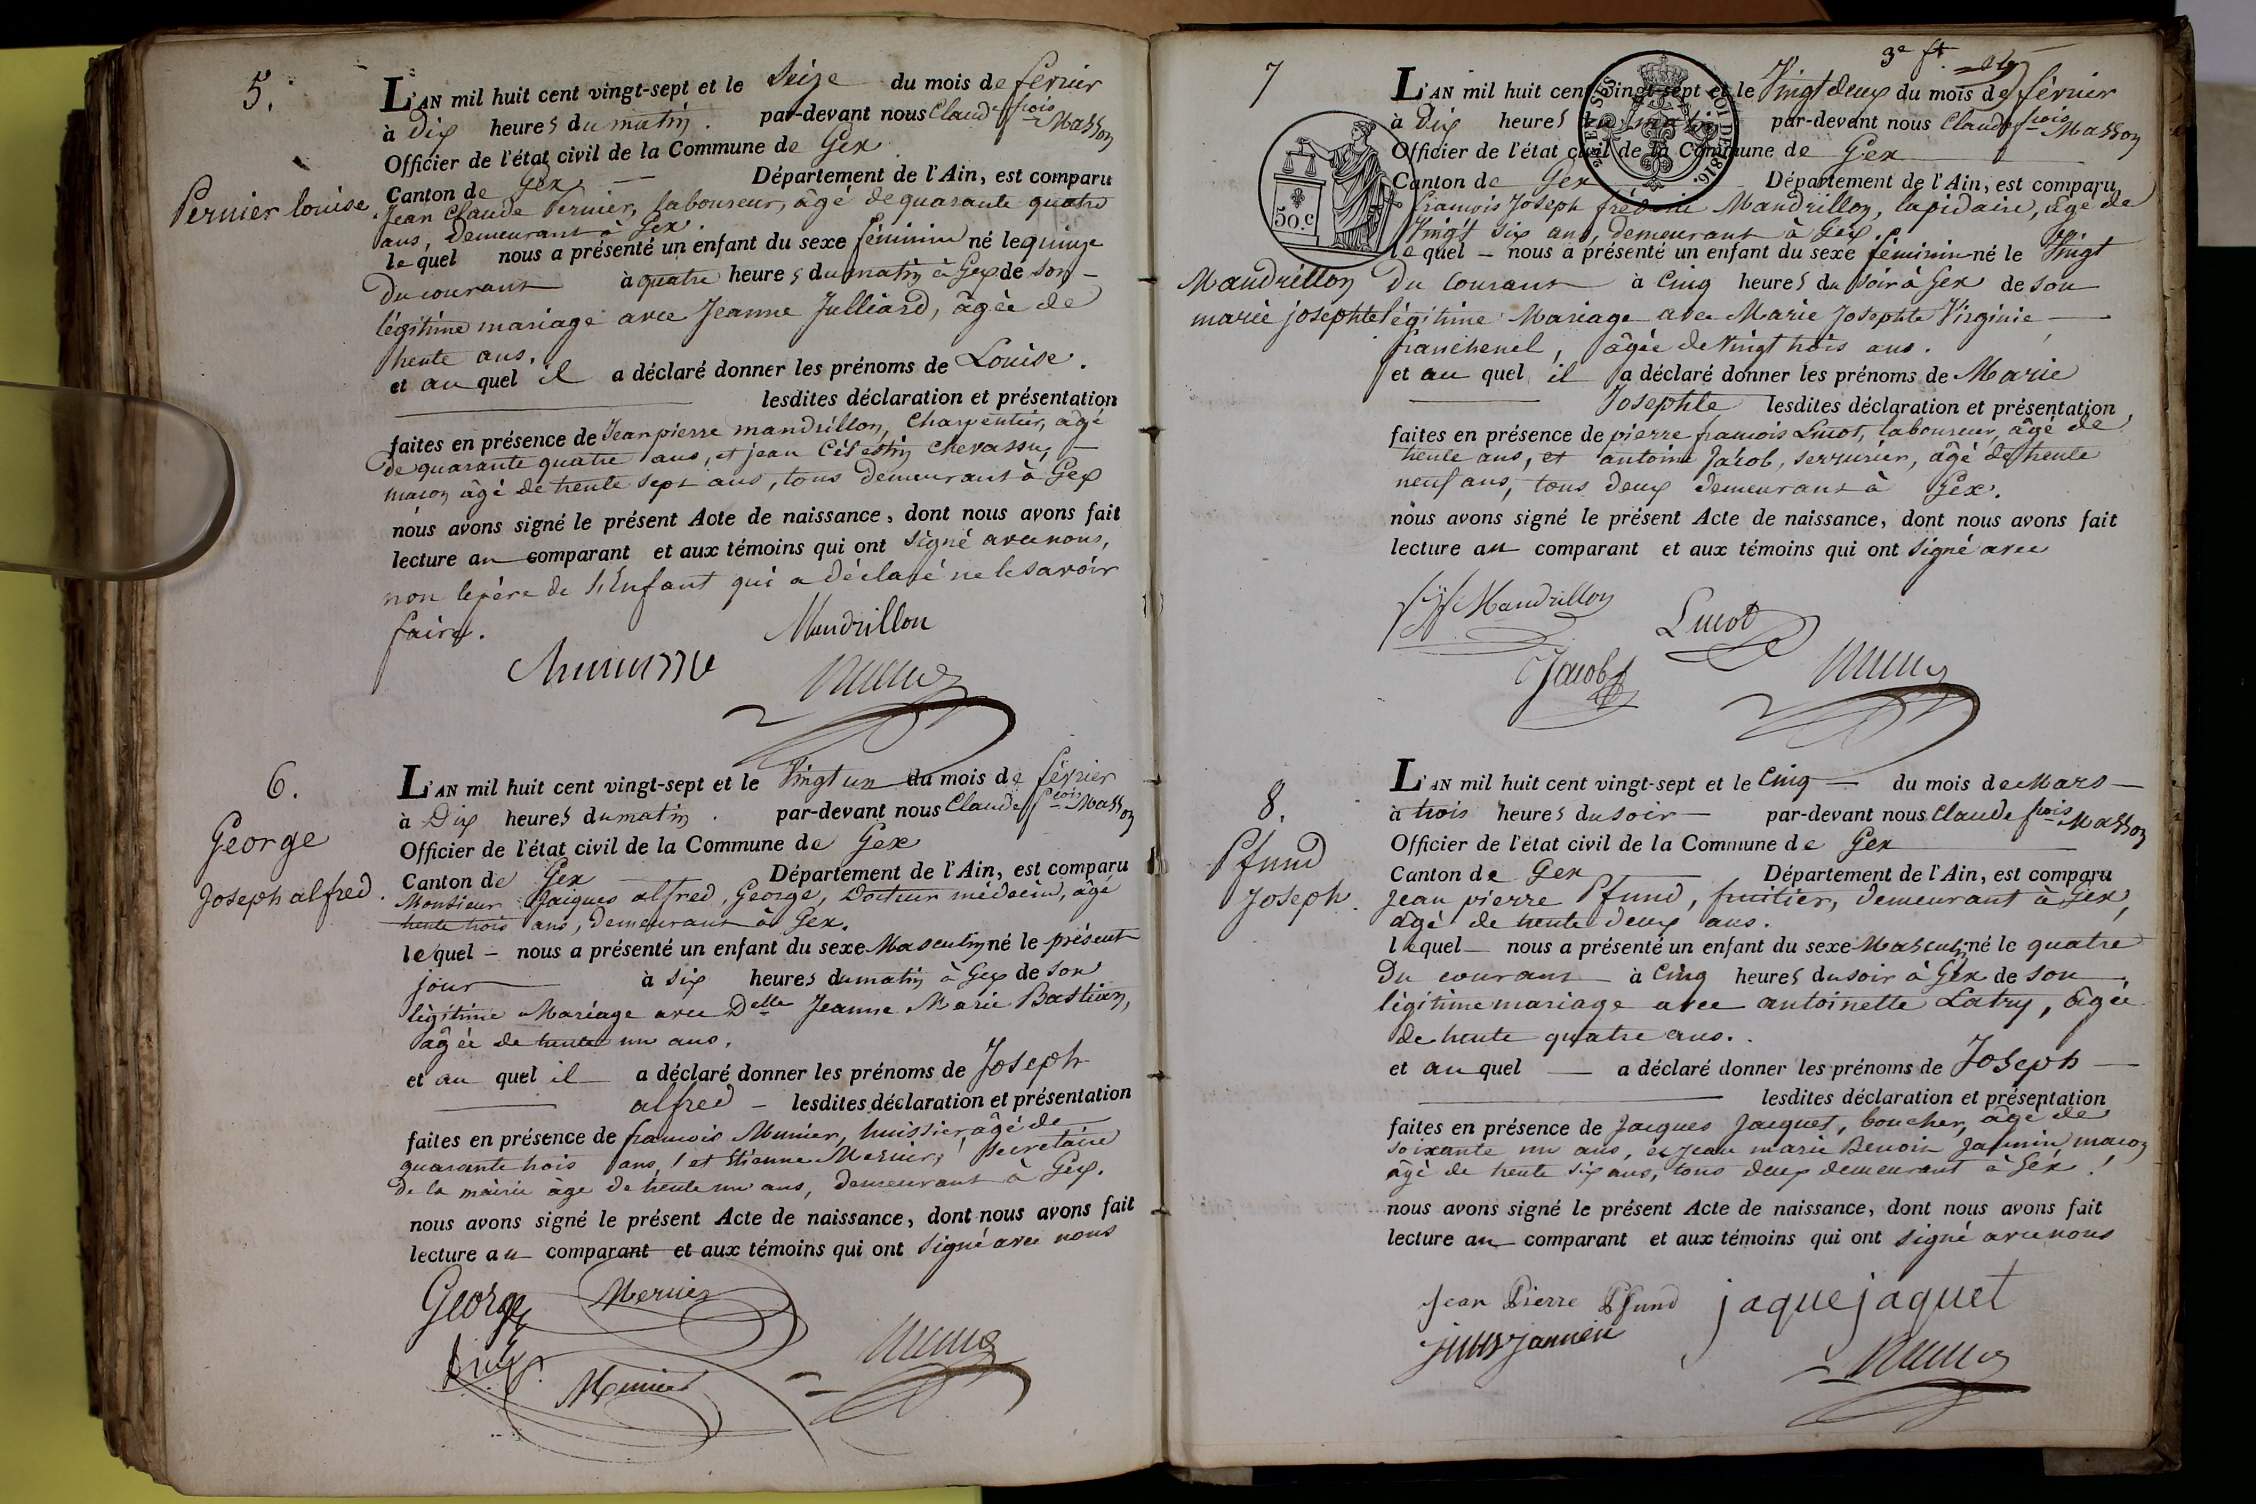 5.
Pernier louise
L'AN mil huit cent vingt-sept et le Seize du mois de fevrier
à Dix heures du matin. par-devant nous Claude fcois Masson
Officier de l'état civil de la Commune de Gex
Canton de Gex Département de l'Ain, est comparu
Jean Claude Pernier, laboureur, âgé de quarante quatre
ans, demeurant à Gex.
le quel nous a présenté un enfant du sexe féminin né le quinze
du courant à quatre heures du matin à Gex de son
légitime mariage avec Jeanne Julliard, âgée de
trente ans.
et au quel il a déclaré donner les prénoms de Louise.
lesdites déclaration et présentation
faites en présence de Jean pierre mandrillon, Charpentier, âgé
de quarante quatre ans, et jean Célestin Chevassu,
maçon âgé de trente sept ans, tous demeurant à Gex
nous avons signé le présent Acte de naissance, dont nous avons fait
lecture au comparant et aux témoins qui ont signé avec nous,
non le père de l'Enfant qui a déclaré ne le savoir
faire.
Mandrillon
6.
George
Joseph alfred.
L'AN mil huit cent vingt-sept et le Vingt un du mois de février
à Dix heures du matin. par-devant nous Claude fcois Masson
Officier de l'état civil de la Commune de Gex
Canton de Gex Département de l'Ain, est comparu
Monsieur Jacques alfred George, Docteur médecin, âgé
trente trois ans, demeurant à Gex.
le quel nous a présenté un enfant du sexe Masculin né le présent
jour à six heures du matin à Gex de son
légitime Mariage avec Delle Jeanne Marie Bastian,
âgée de trente un ans.
et au quel il a déclaré donner les prénoms de Joseph
alfred lesdites déclaration et présentation
faites en présence de francois Munier, huissier, âgé de
quarante trois ans, et Etienne Mernier, Secretaire
de la mairie âgé de trente un ans, demeurant à Gex.
nous avons signé le présent Acte de naissance, dont nous avons fait
lecture au comparant et aux témoins qui ont signé avec nous
George Mernier
Munier
3e ft.
7
2.CEN.SUS LOI DE 1816.
50.c
Mandrillon
marie josephte
L'AN mil huit cent vingt-sept et le Vingt deux du mois de février
à Dix heures du matin par-devant nous Claude fcois Masson
Officier de l'état civil de la Commune de Gex
Canton de Gex Département de l'Ain, est comparu
francois Joseph fréderic Mandrillon, lapidaire, âgé de
Vingt six ans, demeurant à Gex.
le quel nous a présenté un enfant du sexe féminin né le Vingt
du Courant à Cinq heures du soir à Gex de son
légitime Mariage avec Marie Josephte Virginie
franchenel, âgée de Vingt trois ans.
et au quel il a déclaré donner les prénoms de Marie
Josephte lesdites déclaration et présentation
faites en présence de pierre francois Lucot, laboureur, âgé de
trente ans, et antoine Jacob, serrurier, âgé de trente
neuf ans, tous deux demeurant à Gex.
nous avons signé le présent Acte de naissance, dont nous avons fait
lecture au comparant et aux témoins qui ont signé avec
Mandrillon
Lucot
Jacob
8.
Pfund
Joseph.
L'AN mil huit cent vingt-sept et le Cinq du mois de Mars
à trois heures du soir par-devant nous Claude fcois Masson
Officier de l'état civil de la Commune de Gex
Canton de Gex Département de l'Ain, est comparu
Jean pierre Pfund, fruitier, demeurant à Gex,
âgé de trente deux ans.
lequel nous a présenté un enfant du sexe Masculin né le quatre
du courant à Cinq heures du soir à Gex de son
légitime mariage avec antoinette Latry, âgée
de trente quatre ans.
et au quel a déclaré donner les prénoms de Joseph
lesdites déclaration et présentation
faites en présence de Jacques Jacquet, boucher, âgé de
soixante un ans, et Jean marie Benoin Jasmin, macon
âgé de trente six ans, tous deux demeurant à Gex.
nous avons signé le présent Acte de naissance, dont nous avons fait
lecture au comparant et aux témoins qui ont signé avec nous
Jean Pierre Pfund jaque jaquet